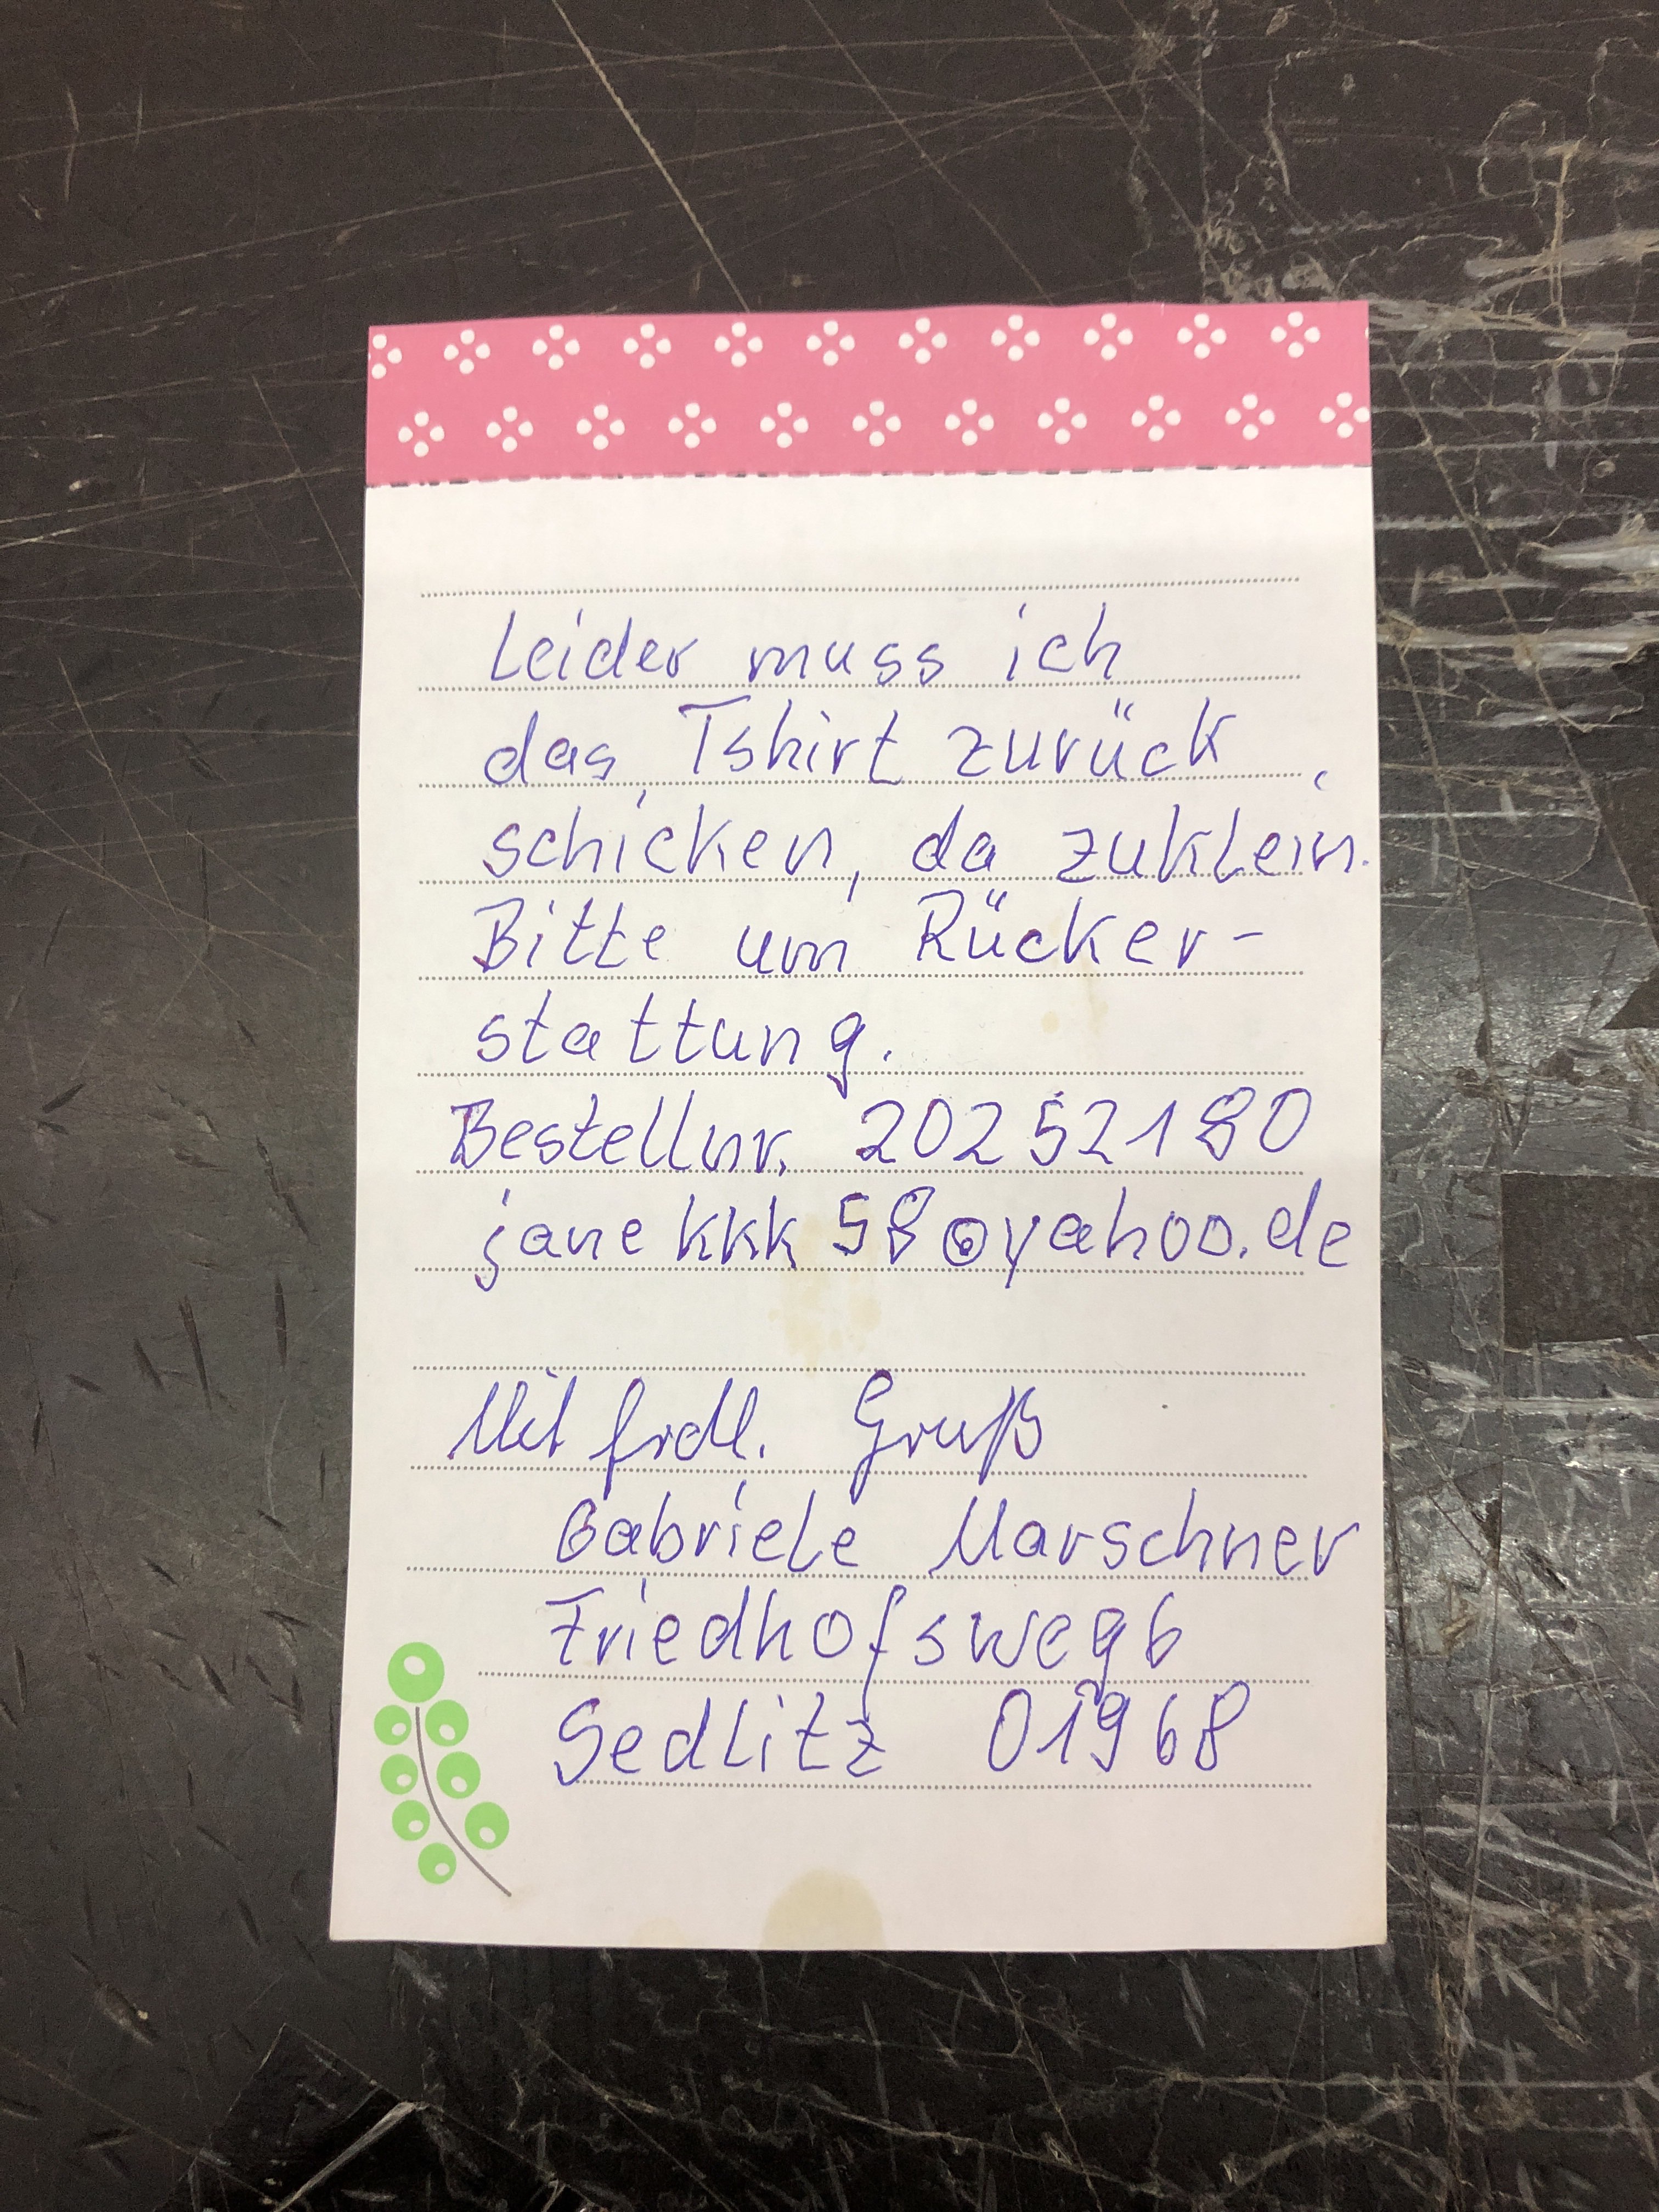 Leider muss ich
das Tshirt zurück
schicken, da zuklein.
Bitte um Rücker-
stattung.
Bestellnr. 20252180
janekkk58@yahoo.de
Mit frdl. Gruß
Gabriele Marschner
Friedhofsweg 6
Sedlitz 01968